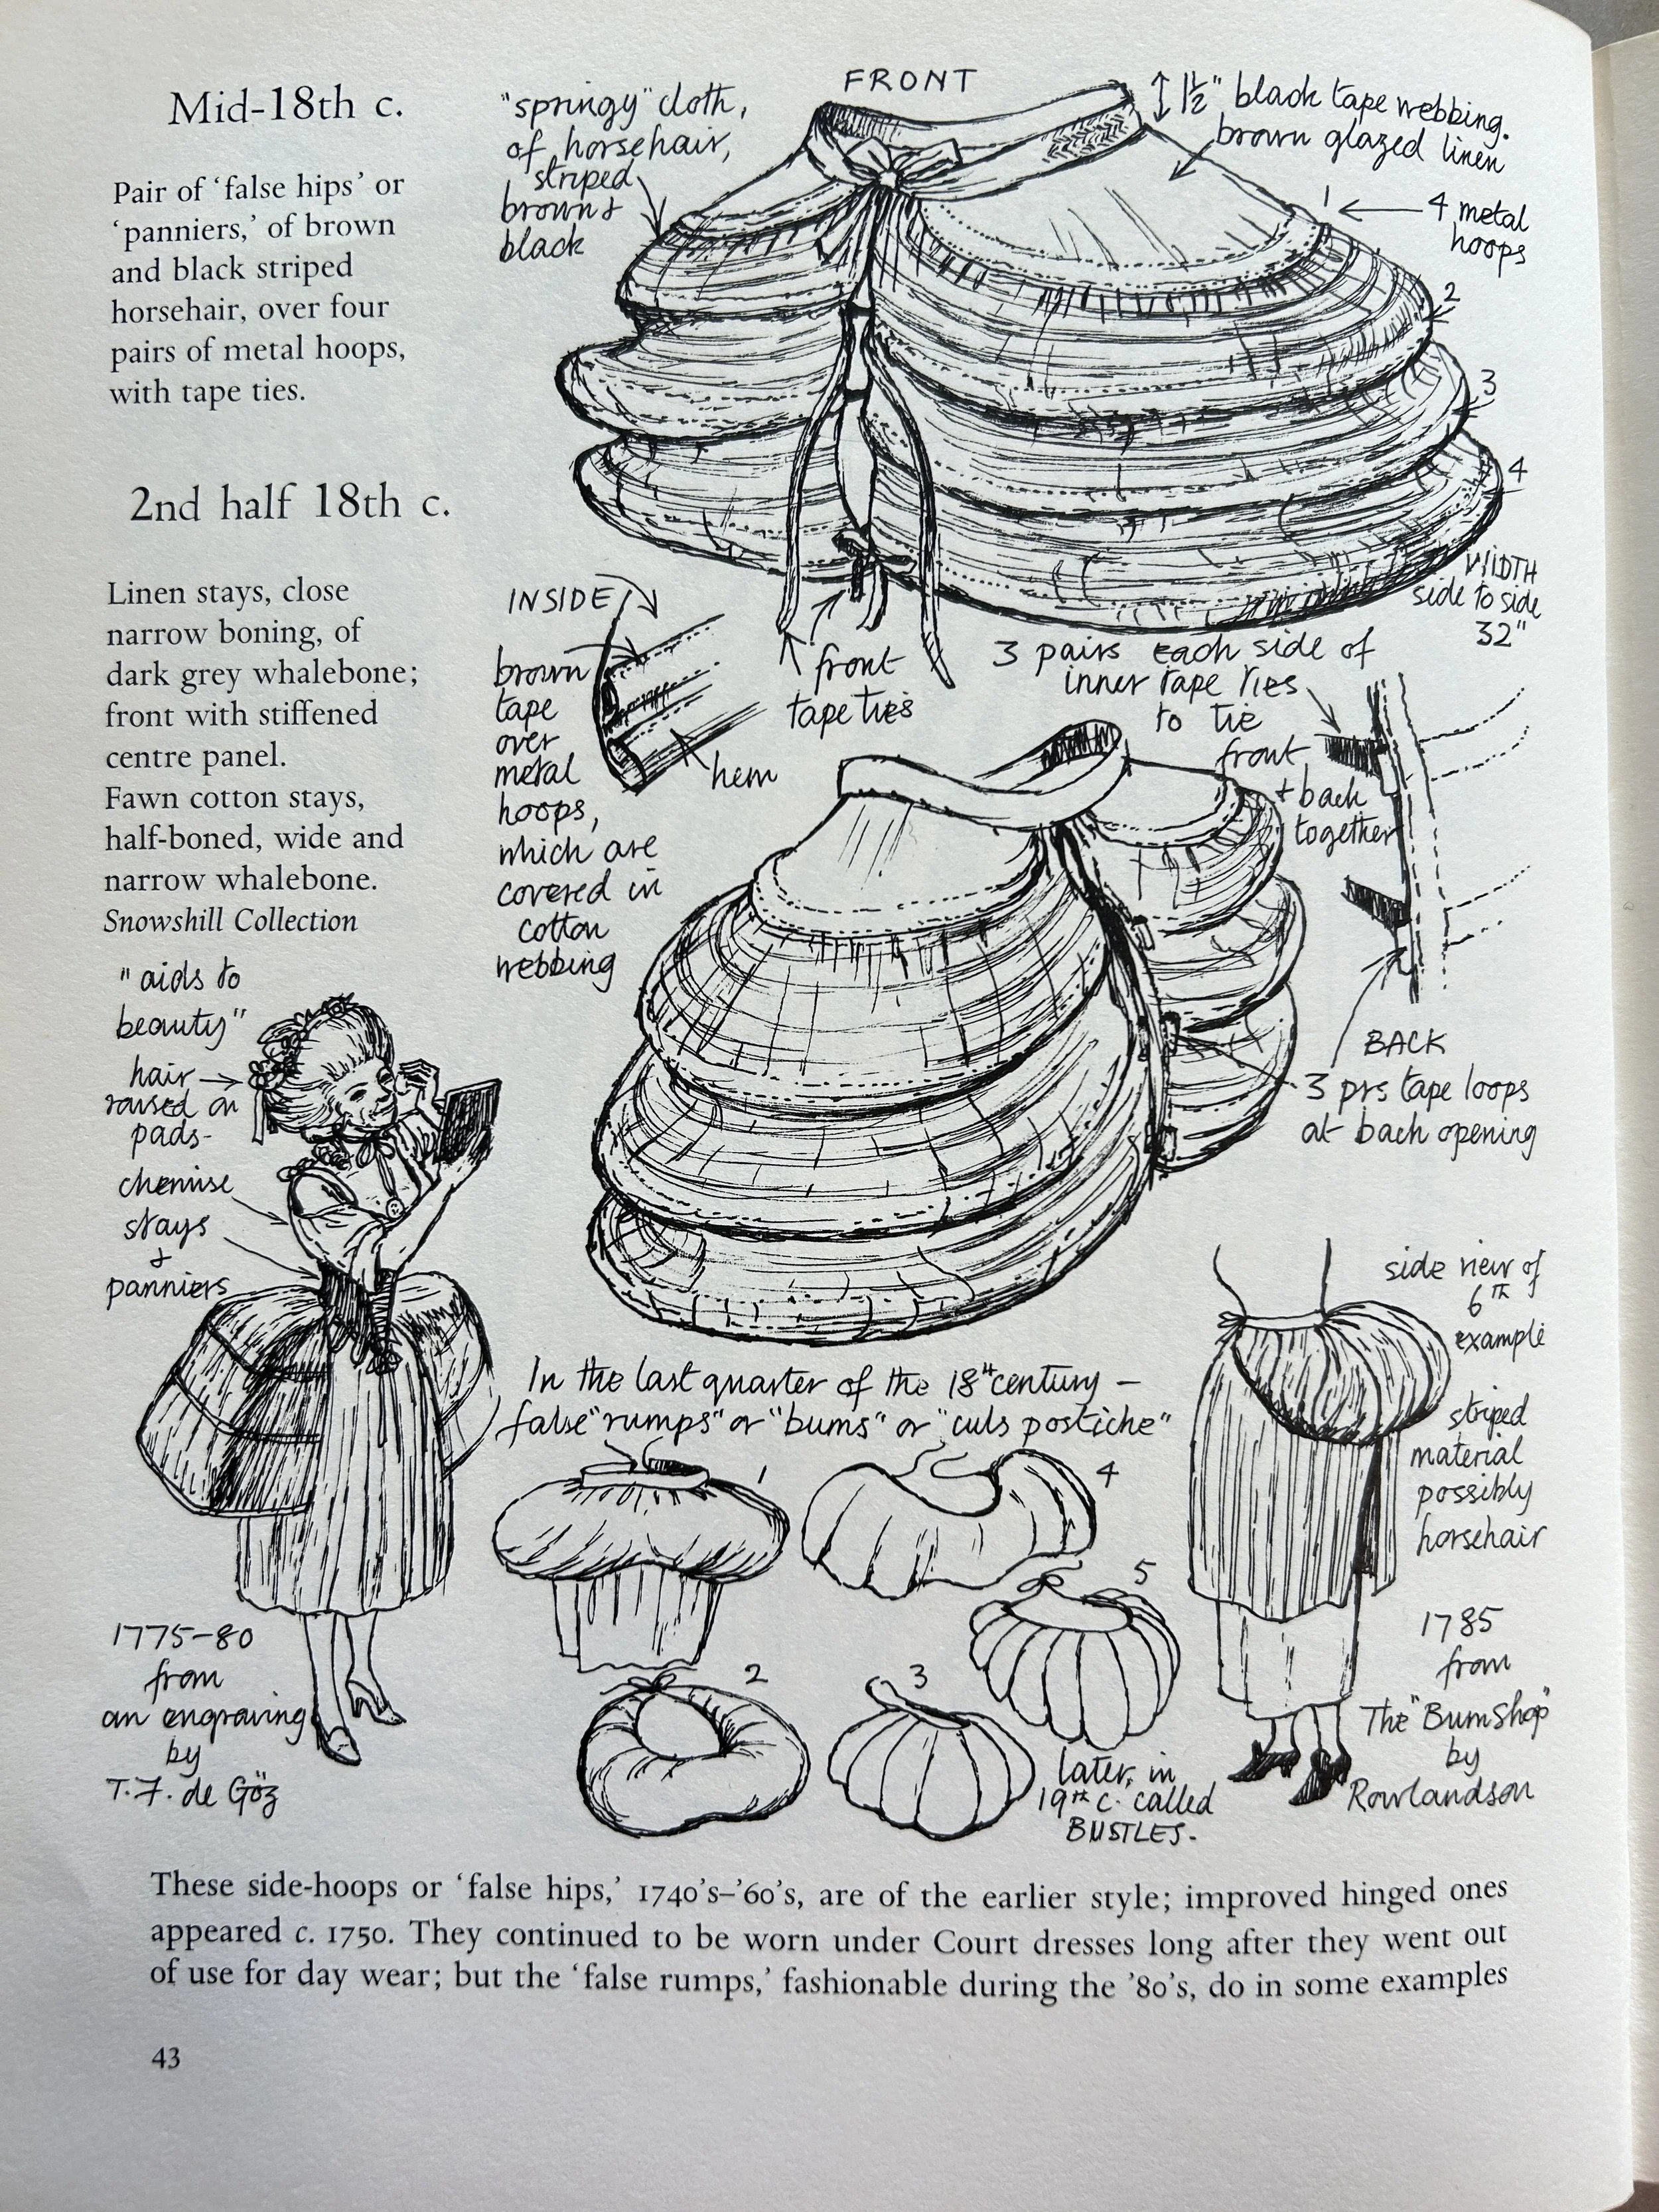 Mid-18th c.
Pair of ‘false hips’ or
‘panniers,’ of brown
and black striped
horsehair, over four
pairs of metal hoops,
with tape ties.
2nd half 18th c.
Linen stays, close
narrow boning, of
dark grey whalebone;
front with stiffened
centre panel.
Fawn cotton stays,
half-boned, wide and
narrow whalebone.
Snowshill Collection
"springy" cloth,
of horsehair,
striped
brown &
black
FRONT
1½" black tape webbing.
brown glazed linen
1
4 metal
hoops
2
3
4
WIDTH
side to side
32"
INSIDE
brown
tape
over
metal
hoops,
which are
covered in
cotton
webbing
hem
front
tape ties
3 pairs each side of
inner tape ties
to tie
front
+ back
together
BACK
3 prs tape loops
at back opening
"aids to
beauty"
hair
raised on
pads-
chemise
stays
&
panniers
1775-80
from
an engraving
by
T.F. de Göz
In the last quarter of the 18th century –
false "rumps" or "bums" or "culs postiche"
1
4
5
2
3
later, in
19th c. called
BUSTLES.
side view of
6th
example
striped
material
possibly
horsehair
1785
from
The "Bum Shop"
by
Rowlandson
These side-hoops or ‘false hips,’ 1740’s–’60’s, are of the earlier style; improved hinged ones
appeared c. 1750. They continued to be worn under Court dresses long after they went out
of use for day wear; but the ‘false rumps,’ fashionable during the ’80’s, do in some examples
43